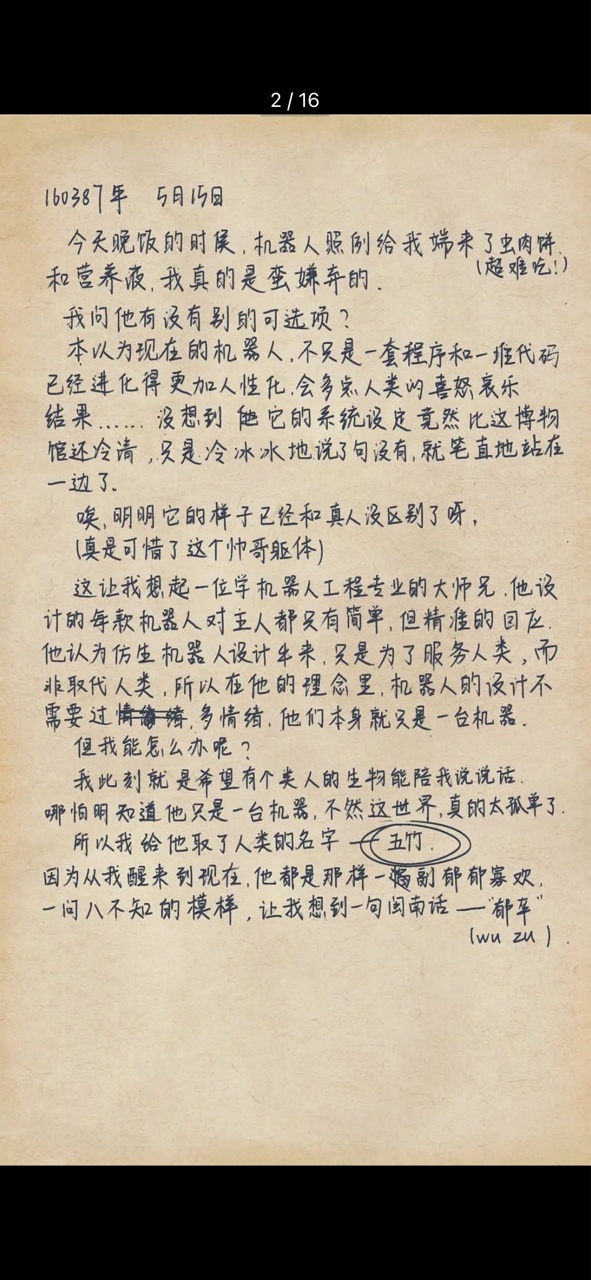 2 / 16
160387年 5月15日
今天晚饭的时候,机器人照例给我端来了虫肉饼
(超难吃!)
和营养液,我真的是蛮嫌弃的.
我问他有没有别的可选项?
本以为现在的机器人,不只是一套程序和一堆代码
已经进化得更加人性化,会多点人类的喜怒哀乐
结果……没想到 它的系统设定竟然比这博物
馆还冷清,只是冷冰冰地说了句没有,就笔直地站在
一边了.
唉,明明它的样子已经和真人没区别了呀,
(真是可惜了这个帅哥躯体)
这让我想起一位学机器人工程专业的大师兄,他设
计的每款机器人对主人都只有简单,但精准的回应.
他认为仿生机器人设计出来,只是为了服务人类,而
非取代人类,所以在他的理念里,机器人的设计不
需要过多情绪,他们本身就只是一台机器.
但我能怎么办呢?
我此刻就是希望有个类人的生物能陪我说说话.
哪怕明知道他只是一台机器,不然这世界,真的太孤单了.
所以我给他取了人类的名字——五竹.
因为从我醒来到现在,他都是那样一副郁郁寡欢,
一问八不知的模样,让我想到一句闽南话——"郁卒"
(wu zu).